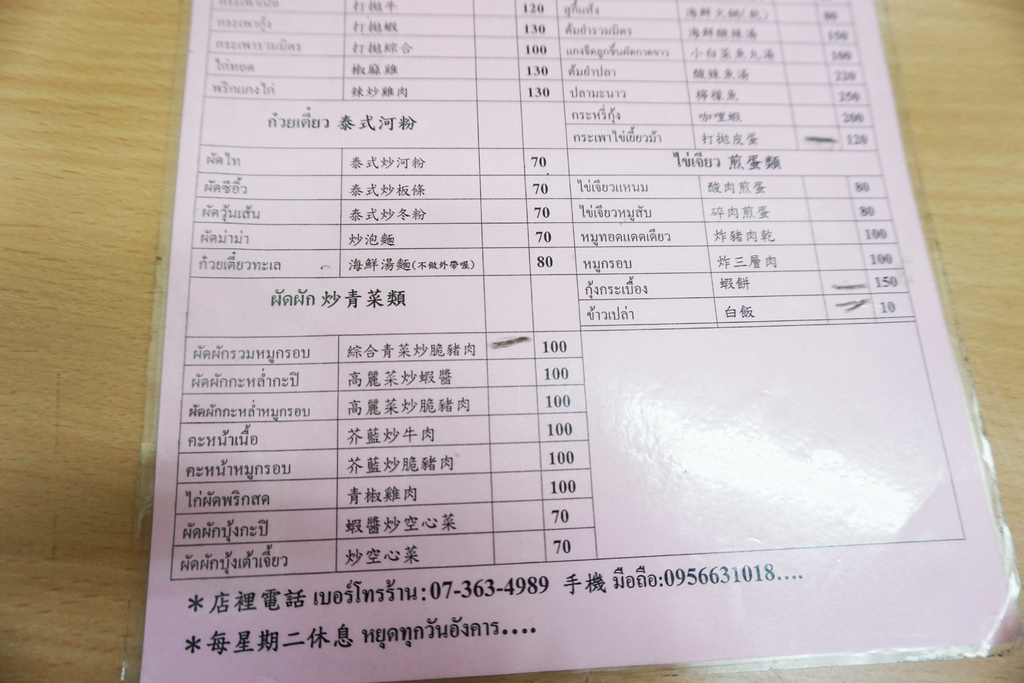 打拋牛 120
กระเพากุ้ง 打拋蝦 130
กระเพารวมมิตร 打拋綜合 100
ไก่ทอด 椒麻雞 130
พริกแกงไก่ 辣炒雞肉 130
ก๋วยเตี๋ยว 泰式河粉
ผัดไท 泰式炒河粉 70
ผัดซีอิ๊ว 泰式炒板條 70
ผัดวุ้นเส้น 泰式炒冬粉 70
ผัดม่าม่า 炒泡麵 70
ก๋วยเตี๋ยวทะเล 海鮮湯麵(不做外帶喔) 80
ผัดผัก 炒青菜類
ผัดผักรวมหมูกรอบ 綜合青菜炒脆豬肉 100
ผัดผักกะหล่ำกะปิ 高麗菜炒蝦醬 100
ผัดผักกะหล่ำหมูกรอบ 高麗菜炒脆豬肉 100
คะหน้าเนื้อ 芥藍炒牛肉 100
คะหน้าหมูกรอบ 芥藍炒脆豬肉 100
ไก่ผัดพริกสด 青椒雞肉 100
ผัดผักบุ้งกะปิ 蝦醬炒空心菜 70
ผัดผักบุ้งเต้าเจี้ยว 炒空心菜 70
สุกี้แห้ง 海鮮火鍋(乾) 80
ต้มยำรวมมิตร 海鮮酸辣湯 150
แกงจืดลูกชิ้นผักกาดขาว 小白菜魚丸湯 100
ต้มยำปลา 酸辣魚湯 220
ปลามะนาว 檸檬魚 250
กระหรี่กุ้ง 咖哩蝦 200
กระเพาไข่เยี่ยวม้า 打拋皮蛋 120
ไข่เจียว 煎蛋類
ไข่เจียวแหนม 酸肉煎蛋 80
ไข่เจียวหมูสับ 碎肉煎蛋 80
หมูทอดแดดเดียว 炸豬肉乾 100
หมูกรอบ 炸三層肉 100
กุ้งกระเบื้อง 蝦餅 150
ข้าวเปล่า 白飯 10
＊店裡電話 เบอร์โทรร้าน:07-363-4989 手機 มือถือ:0956631018....
＊每星期二休息 หยุดทุกวันอังคาร....